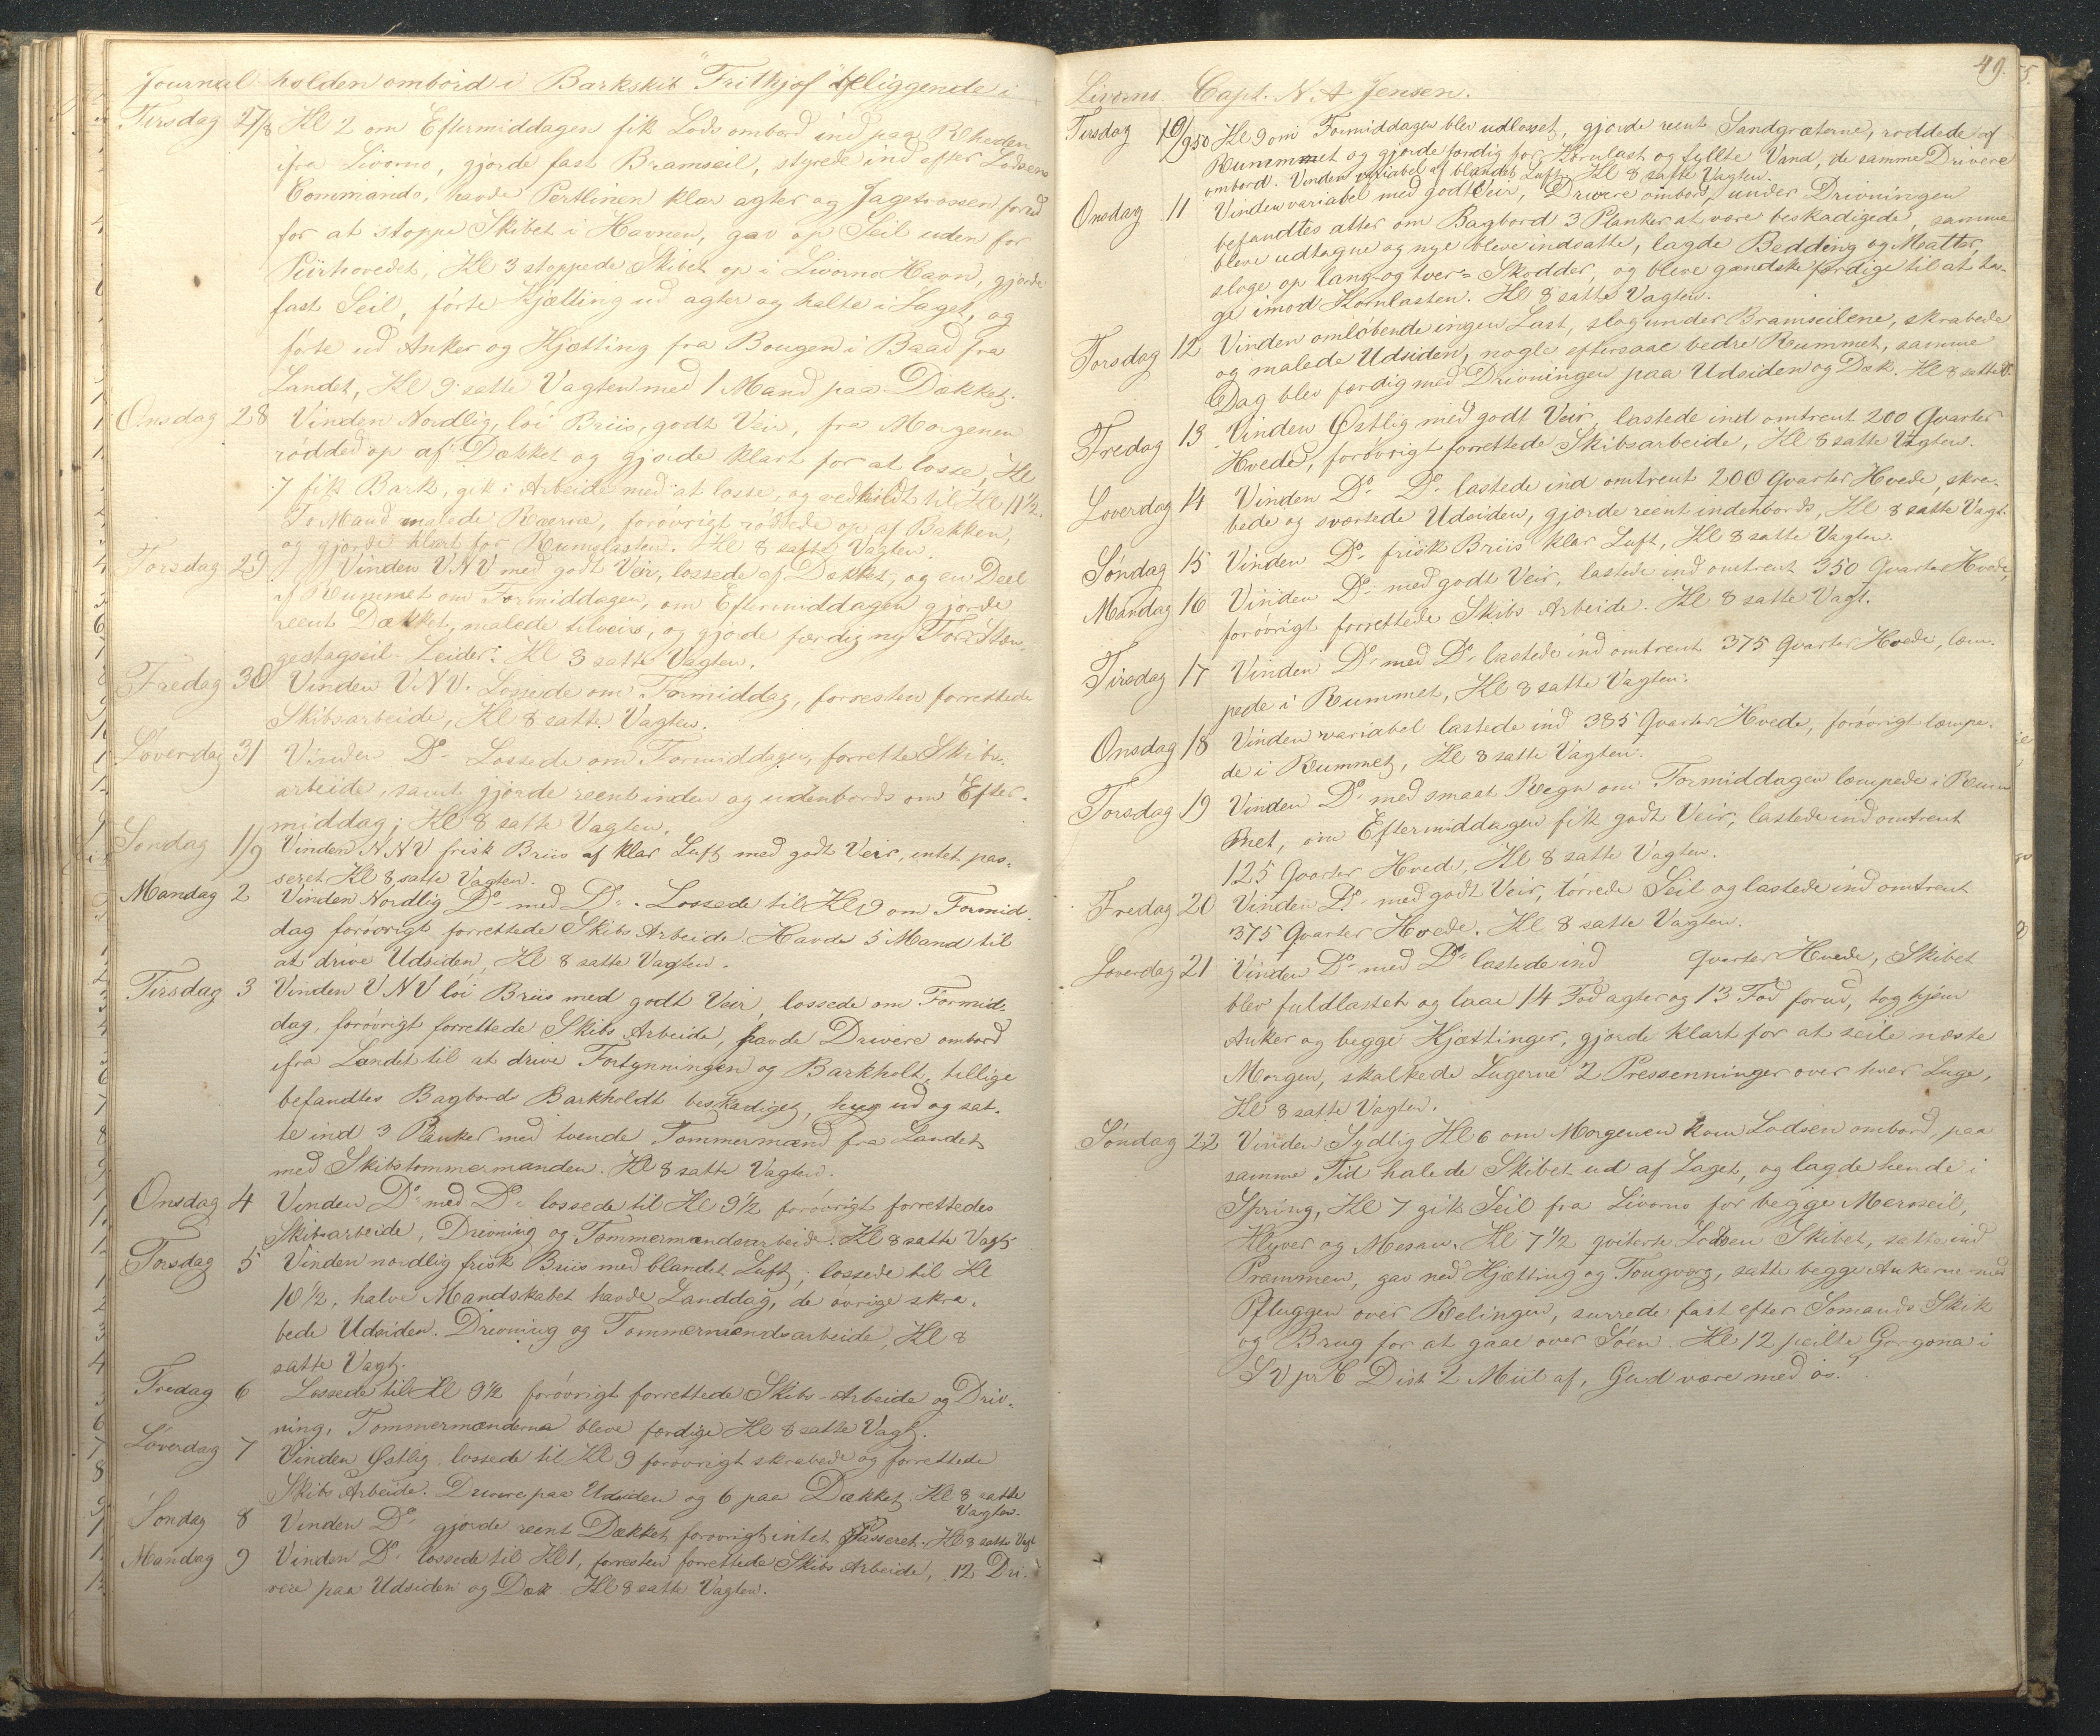 Journal holden ombord i Barkskib "Frithjof" liggende i
Tirsdag 27/8 Kl 2 om Eftermiddagen fik Lods ombord ind paa Rheden
ifra Livorno, gjorde fast Bramseil, styrede ind efter Lodsens
Commando, havde Pertlinen klar agter og Jagetrossen forud
for at stoppe Skibet i Havnen, gav op Seil uden for
Piirhovedet, Kl 3 stoppede Skibet op i Livorno Havn, gjorde
fast Seil, førte Kjætting ud agter og halte i Laget, og
førte ud Anker og Kjætting fra Bougen i Baad fra
Landet, Kl 9 satte Vagten med 1 Mand paa Dækket.
Onsdag 28 Vinden Nordlig, løi Briis, godt Veir, fra Morgenen
røddede op af Dækket og gjorde klart for at losse, Kl
7 fik Bark, gik i Arbeide med at losse, og vedhildt til Kl 11½.
To Mand malede Ræerne, forøvrigt røddede op af Bakken,
og gjorde klart for Rumslasten. Kl 8 satte Vagten.
Torsdag 29 Vinden VNV med godt Veir, lossede af Dækket, og en Deel
af Rummet om Formiddagen, om Eftermiddagen gjorde
reent Dækket, malede tilveirs, og gjorde færdig ny For Stæn-
gestagseil Leider. Kl 8 satte Vagten.
Fredag 30 Vinden VNV. Lossede om Formiddag, forresten forrettede
Skibsarbeide, Kl 8 satte Vagten.
Løverdag 31 Vinden Do Lossede om Formiddagen, forrettede Skibs-
arbeide, samt gjorde reent inden og udenbords om Efter-
middag; Kl 8 satte Vagten.
Søndag 1/9 Vinden NNV frisk Briis af klar Luft med godt Veir, intet pas-
seret Kl 8 satte Vagten.
Mandag 2 Vinden Nordlig Do med Do. Lossede til Kl 9 om Formid-
dag forøvrigt forrettede Skibs Arbeide. Havde 5 Mand til
at drive Udsiden, Kl 8 satte Vagten.
Tirsdag 3 Vinden VNV løi Briis med godt Veir, lossede om Formid-
dag, forøvrigt forrettede Skibs Arbeide, havde Drivere ombord
ifra Landet til at drive Fortynningen og Barkholt, tillige
befandtes Bagbords Barkholdt beskadiget, hug ud og sat-
te ind 3 Planker med tvende Tømmermænd fra Landet
med Skibstømmermanden. Kl 8 satte Vagten.
Onsdag 4 Vinden Do med Do lossede til Kl 9½ forøvrigt forrettedes
Skibsarbeide, Drivning og Tømmermandsarbeide. Kl 8 satte Vagt
Torsdag 5 Vinden nordlig frisk Briis med blandet Luft; lossede til Kl
10½, halve Mandskabet havde Landdag, de øvrige skra-
bede Udsiden. Drivning og Tømmermandsarbeide, Kl 8
satte Vagt.
Fredag 6 Lossede til Kl 9½ forøvrigt forrettede Skibs-Arbeide og Driv-
ning, Tømmermænderne bleve færdige Kl 8 satte Vagt.
Løverdag 7 Vinden Østlig, lossede til Kl 9 forøvrigt skrabede og forrettede
Skibs Arbeide. Drivere paa Udsiden og 6 paa Dækket. Kl 8 satte
Vagten.
Søndag 8 Vinden Do gjorde reent Dækket forøvrigt intet Passeret. Kl 8 satte Vagt
Mandag 9 Vinden Do lossede til Kl 1, forresten forrettede Skibs Arbeide, 12 Dri-
vere paa Udsiden og Dæk. Kl 8 satte Vagten.
49.
Livorno Capt. N. A. Jensen.
Tirsdag 10/9 50 Kl 9 om Formiddagen blev udlosset, gjorde reent Sandgræterne, røddede af
Rummet og gjorde færdig for Kornlast og fyllte Vand, de samme Drivere
ombord. Vinden variabel af blandet Luft. Kl 8 satte Vagten.
Onsdag 11 Vinden variabel med godt Veir, Drivere ombord, under Drivningen
befandtes atter om Bagbord 3 Planker at være beskadigede, samme
bleve udtagne og nye bleve indsatte, lagde Bedding og Matter,
sloge op lang- og tver- Skodder, og bleve gandske færdige til at ta-
ge imod Kornlasten. Kl 8 satte Vagten.
Torsdag 12 Vinden omløbende ingen Last, slog under Bramseilene, skrabede
og malede Udsiden, nogle eftersaae bedre Rummet, samme
Dag blev færdig med Drivningen paa Udsiden og Dæk. Kl 8 satte V.
Fredag 13 Vinden Østlig med godt Veir, lastede ind omtrent 200 Quarter
Hvede, forøvrigt forrettede Skibsarbeide, Kl 8 satte Vagten.
Løverdag 14 Vinden Do Do lastede ind omtrent 200 Quarter Hvede, skra-
bede og sværtede Udsiden, gjorde reent indenbords, Kl 8 satte Vagt.
Søndag 15 Vinden Do frisk Briis klar Luft, Kl 8 satte Vagten.
Mandag 16 Vinden Do med godt Veir, lastede ind omtrent 350 Quarter Hvede,
forøvrigt forrettede Skibs Arbeide. Kl 8 satte Vagt.
Tirsdag 17 Vinden Do med Do lastede ind omtrent 375 Quarter Hvede, læm-
pede i Rummet, Kl 8 satte Vagten.
Onsdag 18 Vinden variabel lastede ind 385 Quarter Hvede, forøvrigt læmpe-
de i Rummet, Kl 8 satte Vagten.
Torsdag 19 Vinden Do med smaat Regn om Formiddagen læmpede i Rum
met, om Eftermiddagen fik godt Veir, lastede ind omtrent
125 Quarter Hvede, Kl 8 satte Vagten.
Fredag 20 Vinden Do med godt Veir, tørrede Seil og lastede ind omtrent
375 Quarter Hvede. Kl 8 satte Vagten.
Løverdag 21 Vinden Do med Do lastede ind Quarter Hvede, Skibet
blev fuldlastet og laae 14 Fod agter og 13 Fod forud, tog hjem
Anker og begge Kjættinger, gjorde klart for at seile næste
Morgen, skalkede Lugerne 2 Pressenninger over hver Luge,
Kl 8 satte Vagten.
Søndag 22 Vinden Sydlig Kl 6 om Morgenen kom Lodsen ombord, paa
samme Tid halede Skibet ud af Laget, og lagde hende i
Spring, Kl 7 gik Seil fra Livorno for begge Merseil,
Klyver og Mesan. Kl 7½ qviterte Lodsen Skibet, satte ind
Prammen, gav ned Kjætting og Tougværg, satte begge Ankerne med
Pfluggen over Relingen, surrede fast efter Sømands Skik
og Brug for at gaae over Søen. Kl 12 peilte Gorgona i
SV pr C Dist 2 Miil af, Gud være med os!